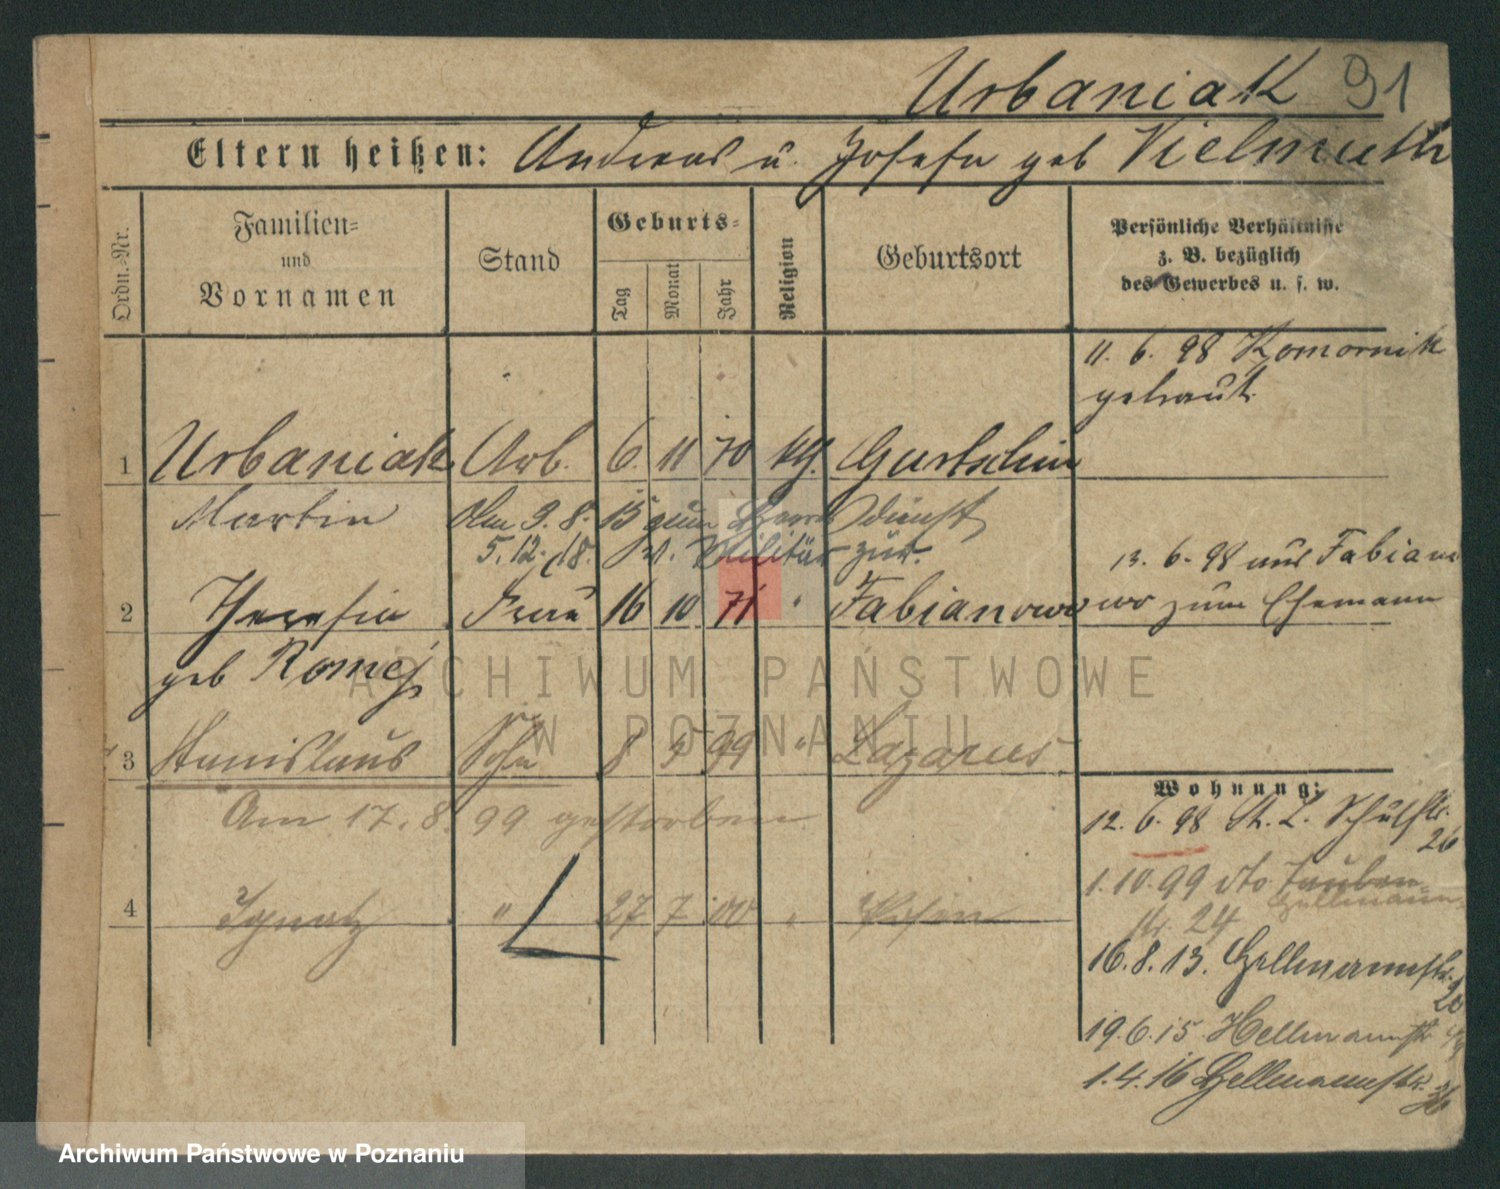 Urbaniak 91
Eltern heißen: Andreas u. Josefa geb Vielmuth
Ordn.-Nr.
Familien-
und
Vornamen
Stand
Geburts-
Tag
Monat
Jahr
Religion
Geburtsort
Persönliche Verhältnisse
z. B. bezüglich
des Gewerbes u. s. w.
11. 6. 98 Komornik
getraut
1 Urbaniak Arb. 6. 11 70 kg. Gurtschin
Martin Am 9. 8. 15 zum Heeresdienst
5. 12. 18. v. Militär zur.
13. 6. 98 aus Fabiano
2 Theresia Frau 16 10 71 " Fabianowo wo zum Ehemann
geb Romej
3 Stanislaus Sohn 8 5 99 " Lazarus
Am 17. 8. 99 gestorben
Wohnung:
12. 6. 98 St. L. Schulstr.
26
1. 10. 99 dto Tauben-
Hellmann
str. 24
4 Ignatz " 27 7 00 " Posen
16. 8. 13. Hellmannstr.
20
19. 6. 15 Hellmannstr
1. 4. 16 Hellmannstr.
ARCHIWUM PAŃSTWOWE
W POZNANIU
Archiwum Państwowe w Poznaniu